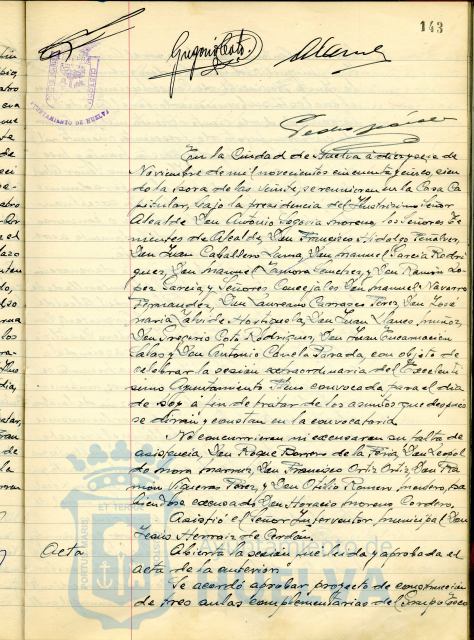 143
AYUNTAMIENTO DE HUELVA
En la Ciudad de Huelva a diez y seis de
Noviembre de mil novecientos cincuenta y cinco, sien
do la hora de las veinte, se reunieron en la Casa Ca
pitular, bajo la presidencia del Ilustrísimo Señor
Alcalde Don Antonio Segovia Moreno, los Señores Te
nientes de Alcalde, Don Francisco Hidalgo Peñalver,
Don Juan Caballero Lama, Don Manuel García Rodrí
guez, Don Manuel Zamora Sanchez, y Don Ramón Ló
pez García y Señores Concejales Don Manuel Navarro
Fernandez, Don Laureano Carrasco Perez, Don José
María Jalvi de Hortigüela, Don Juan Llanes Muñoz,
Don Gregorio Coto Rodriguez, Don Juan Encarnación
Salas y Don Antonio Parada, con objeto de
celebrar la sesión extraordinaria del Excelentí
simo Ayuntamiento Pleno convocada para el día
de hoy a fin de tratar de los asuntos que después
se dirán y constan en la convocatoria
No concurrieron ni excusaron su falta de
asistencia, Don Roque Barrero de la Feria, Don Leopol
do Mora Don Francisco Ortiz Ortiz, Don Ra
món Vigueras Perez, y Don Otilio Romero ha
biendose excusado Don Horacio Moreno Cordero.
Asistió el Señor Interventor municipal Don
Jesús Herraiz de Cerdán
Acta Abierta la sesión fue leída y aprobada el
acta de la anterior
Se acordó aprobar proyecto de construcción
de tres aulas complementarias del Grupo Esco
Ayuntamiento de
HUELVA
PORTUS MARIS
ET TERRAE